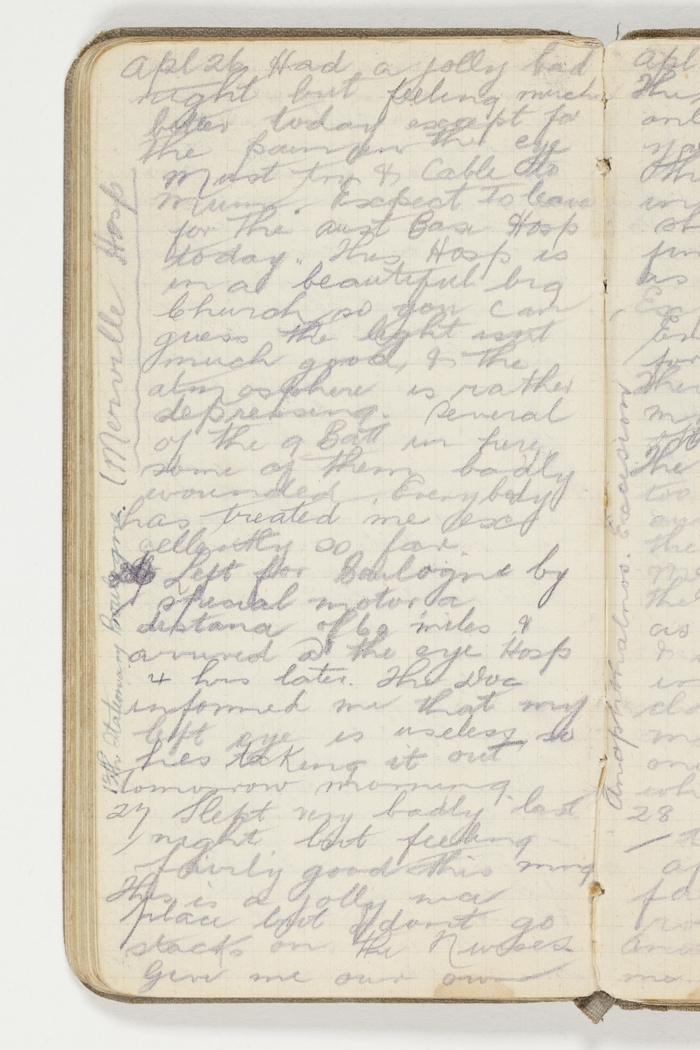 Apl 26 Had a jolly bad
night but feeling much
better today except for
the pain in the eye
Must try & Cable to
Mum. Expect to leave
for the Aust Base Hosp
today. This Hosp is
in a beautiful big
Church so you can
guess the light isnt
much good, & the
atmosphere is rather
depressing. Several
of the 9 Batt in here,
some of them badly
wounded. Everybody
has treated me exc
ellently so far.
Left for Boulogne by
special motor a
distance of 60 miles &
arrived at the eye Hosp
4 hrs later. The Doc
informed me that my
left eye is useless, so
hes taking it out
tomorrow morning.
27 Slept very badly last
night but feeling
fairly good this mng
This is a jolly nice
place but I dont go
stacks on the Nurses
Give me our own
(Merville Hosp
13th Stationary Boulogne.
Apl
28
Anophthalmos. Excision